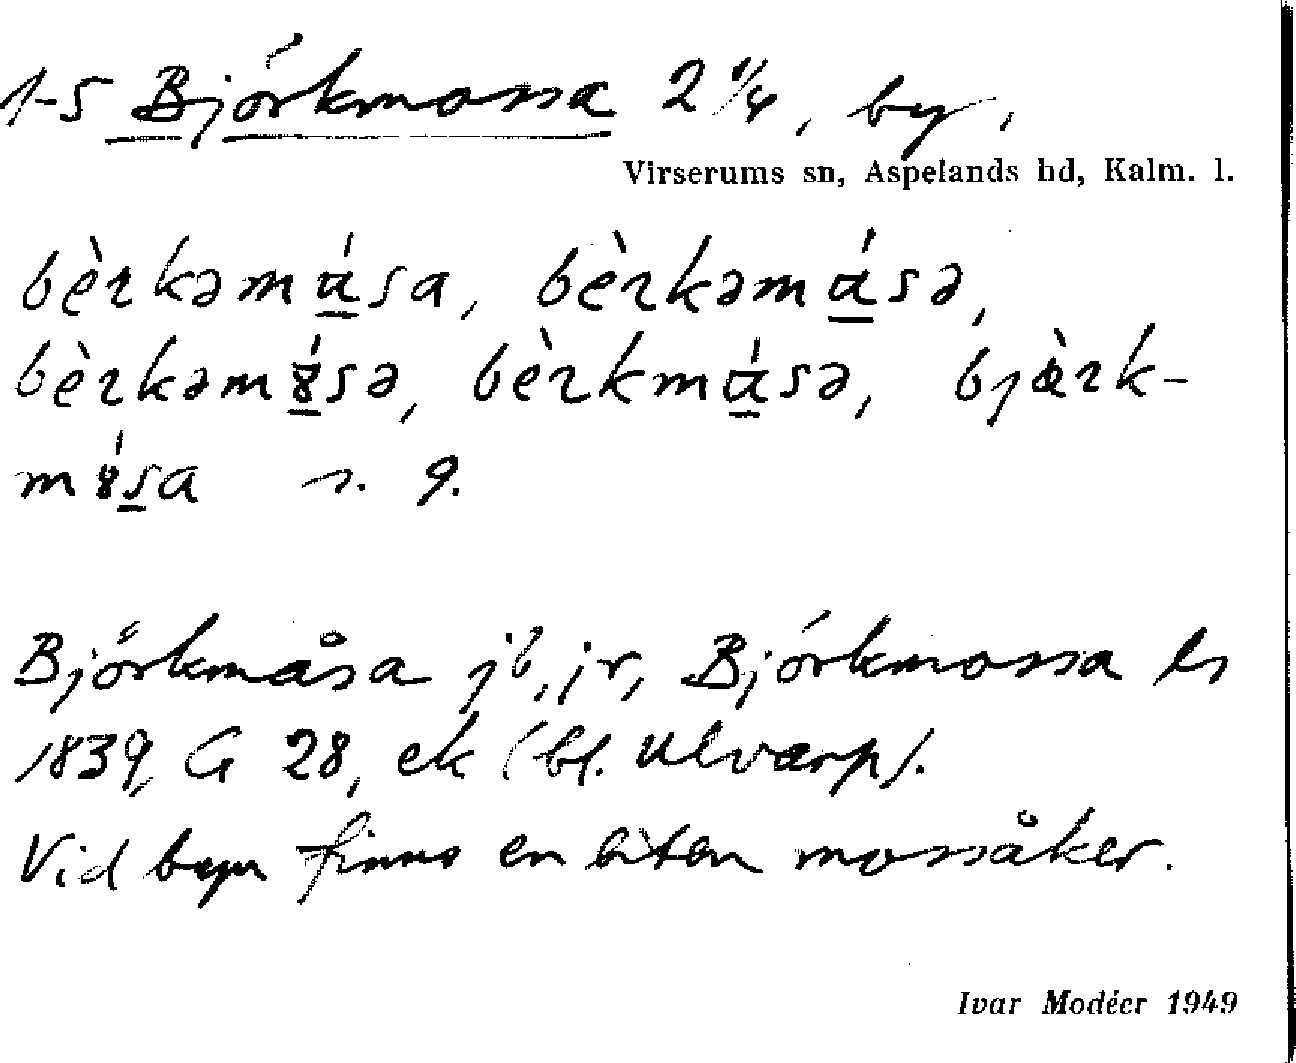 1-5 Björkmossa 2 1/4, by,
Virserums sn, Aspelands hd, Kalm. l.
bèrkəmása, bèrkəmásə,
bèrkəm8́sə, bèrkmásə, bjàrk-
m8́sa s. 9.
Björkmåsa jb, jr, Björkmossa ls
1839, G 28, ek (bl. Ulvarp).
Vid byn finns en liten mossåker.
Ivar Modéer 1949